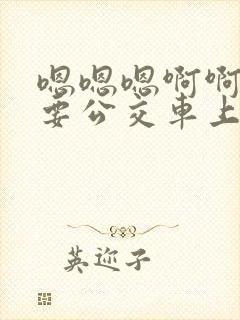 嗯嗯嗯啊啊
要公交車上
英迩子